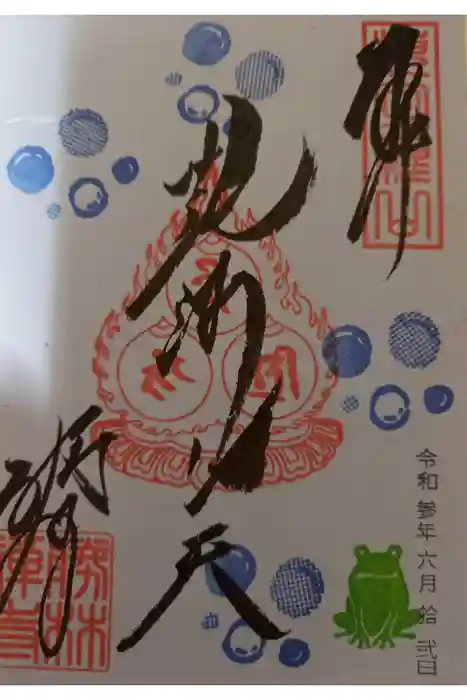 奉拝
毘沙門天
勝林寺
勝林
禅寺
令和参年六月拾弐日